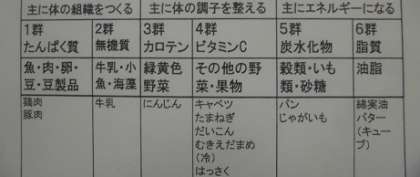 主に体の組織をつくる 主に体の調子を整える 主にエネルギーになる
1群 2群 3群 4群 5群 6群
たんぱく質 無機質 カロテン ビタミンC 炭水化物 脂質
魚・肉・卵・ 牛乳・小 緑黄色 その他の野 穀類・いも 油脂
豆・豆製品 魚・海藻 野菜 菜・果物 類・砂糖
鶏肉 牛乳 にんじん キャベツ パン 綿実油
豚肉 たまねぎ じゃがいも バター
だいこん (キュー
むきえだまめ ブ)
(冷)
はっさく